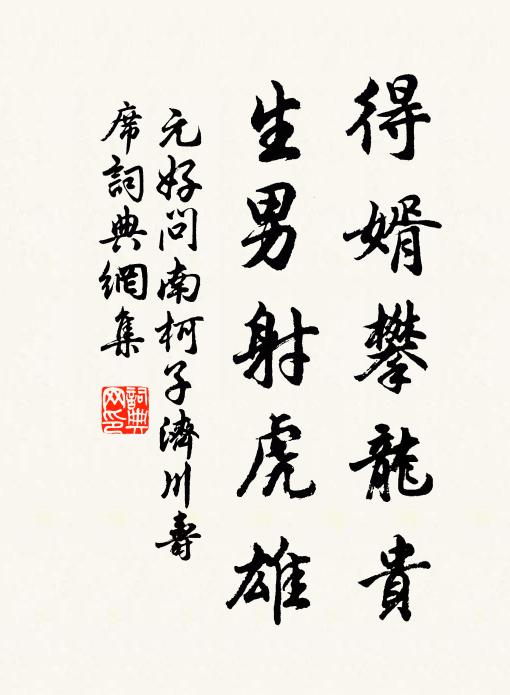 得婿攀龍貴
生男射虎雄
元好问南柯子濟川壽
席詞典網集
詞典
网印